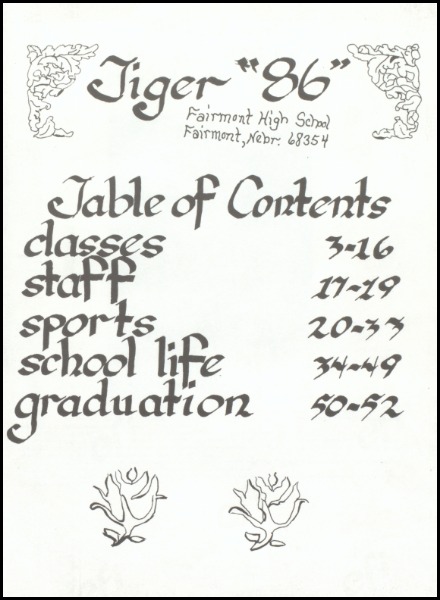 Tiger "86"
Fairmont High School
Fairmont, Nebr. 68354
Table of Contents
classes 3-16
staff 17-19
sports 20-33
school life 34-49
graduation 50-52